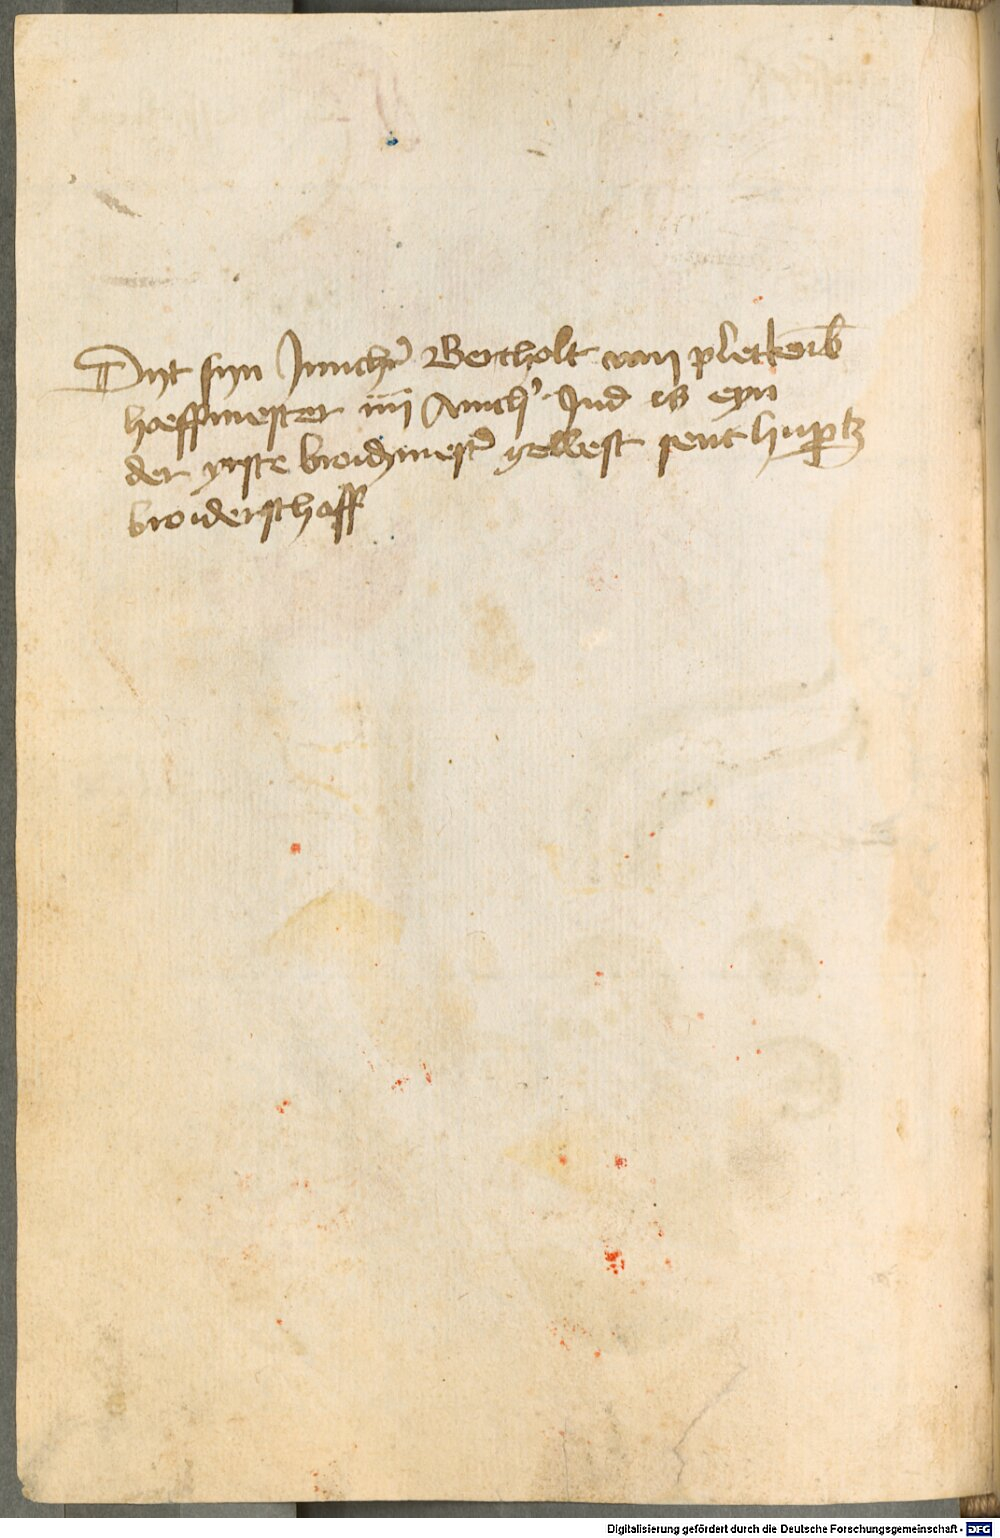 Dyt syn Junchr̃ Bertholt van pletkoırb̃
hoeffmester iiij Anich' Ind is eyn
der yrste broid'mest' gewest sent hupt͛z
broiderschaff
Digitalisierung gefördert durch die Deutsche Forschungsgemeinschaft - DFG